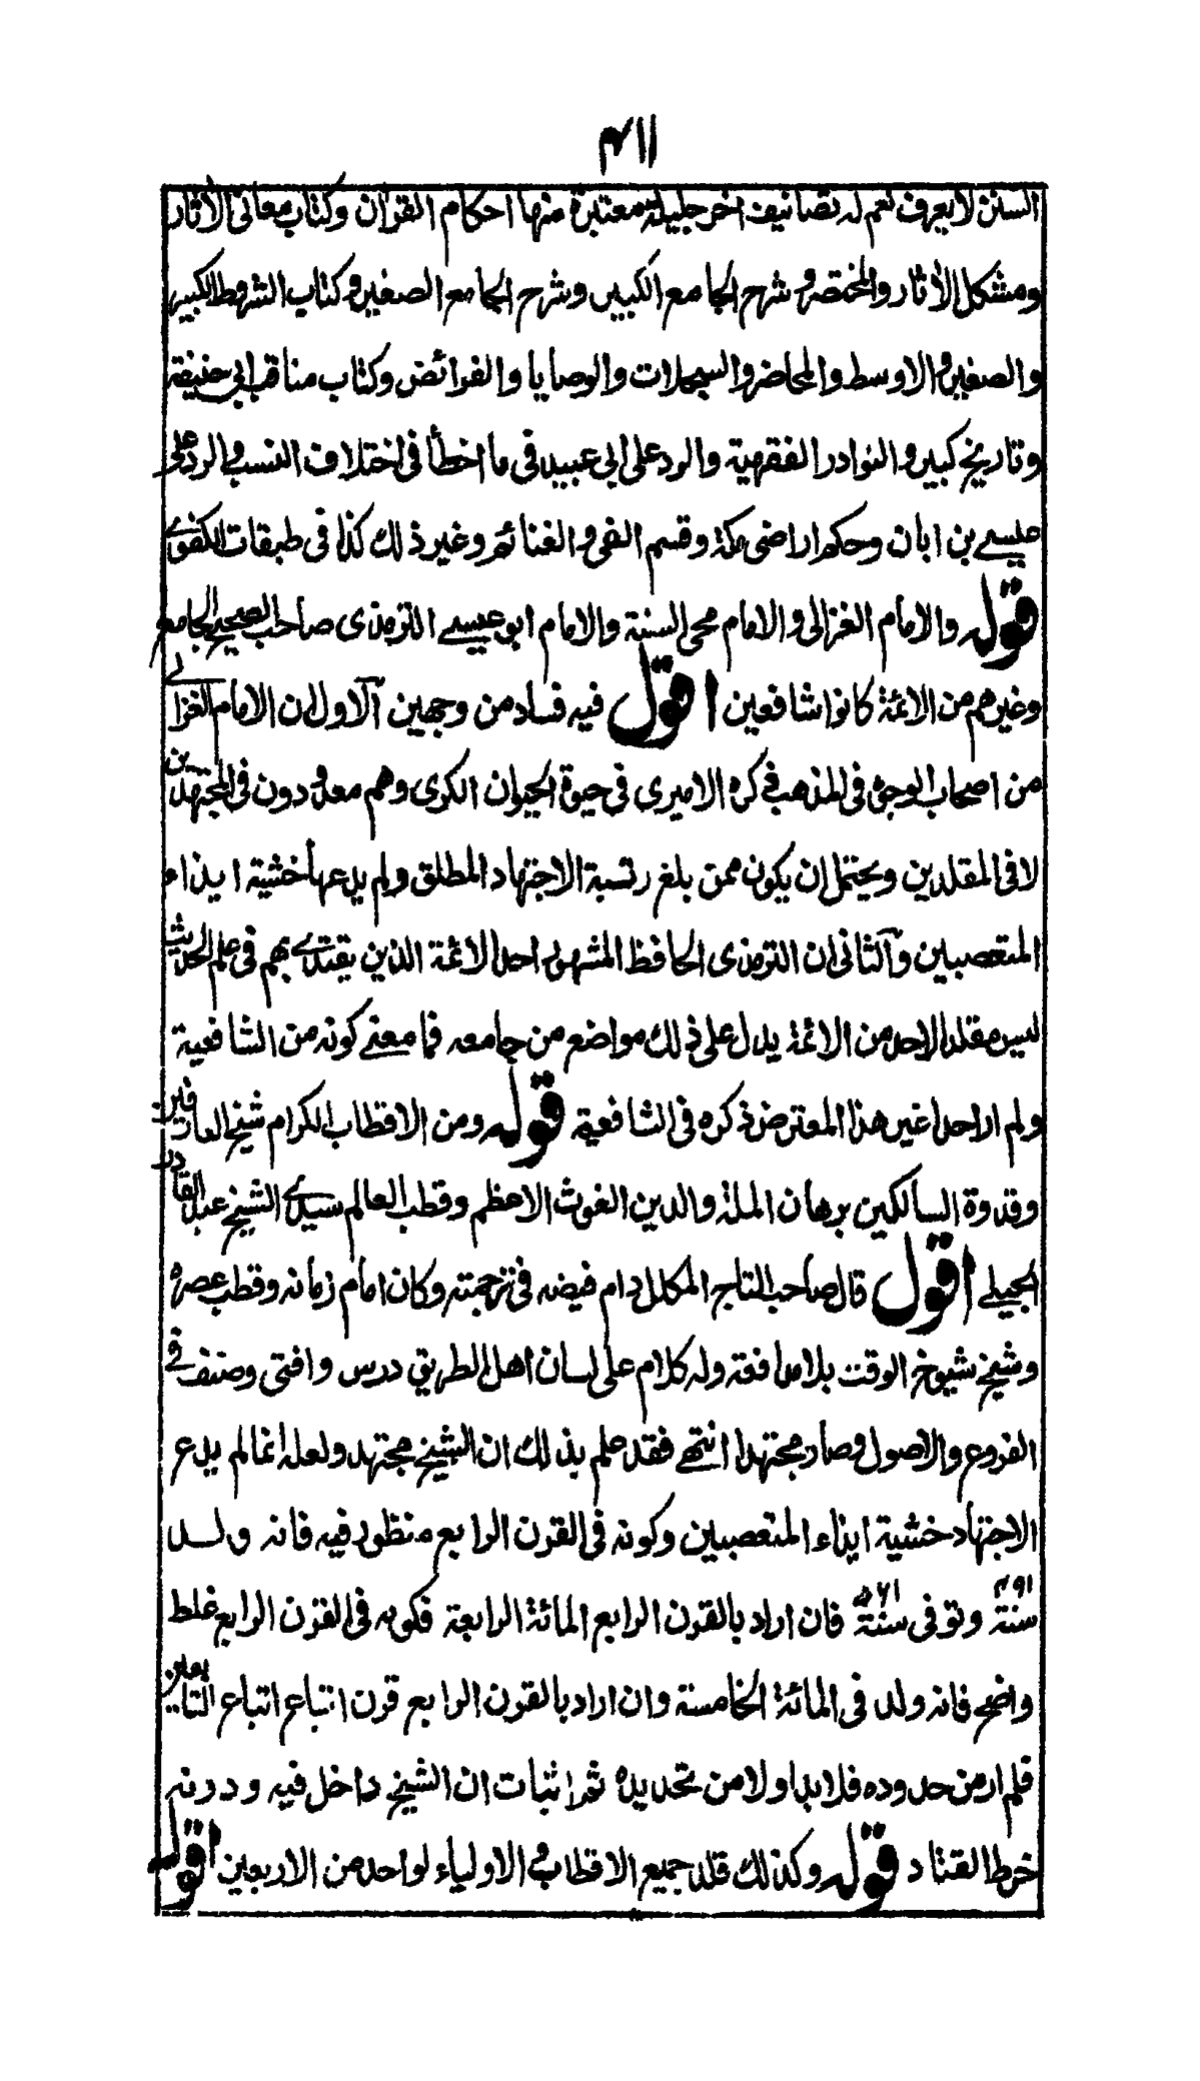 ٤١١
السنن لا يعرف نعم له تصانيف اخر جليلة معتبرة منها احكام القران وكتاب معانى الاثار
ومشكل الاثار والمختصر و شرح الجامع الكبير وشرح الجامع الصغير وكتاب الشروط الكبير
والصغير والاوسط والمحاضر والسجلات والوصايا والفرائض وكتاب مناقب ابى حنيفة
وتاريخ كبير والنوادر الفقهية والرد على ابى عبيد فى ما اخطأ فى اختلاف النسب والرد على
عيسے بن ابان وحكم اراضى مكة وقسم الفى والغنائم وغير ذلك كذا فى طبقات الكفوے
قوله والامام الغزالى والامام محى السنة والامام ابو عيسے الترمذى صاحب الصحيح الجامع
وغيرهم من الائمة كانوا شافعين اقول فيه فساد من وجهين آلاول ان الامام الغزالے
من اصحاب الوجوه فى المذهب ذكره الاميرى فى حيوة الحيوان الكرى وهم معدودون فى المجتهدين
لا فى المقلدين ويحتمل ان يكون ممن بلغ رتبة الاجتهاد المطلق ولم يدعها خشية ايذاء
المتعصبين وآلثانى ان الترمذى الحافظ المشهور احد الائمة الذين يقتدے بهم فى علم الحديث
ليس مقلدا لاحد من الائمة يدل على ذلك مواضع من جامعه فما معنے كونه من الشافعية
ولم ار احدا غير هذا المعترض ذكره فى الشافعية قوله ومن الاقطاب الكرام شيخ العارفين
وقدوة السالكين برهان الملة والدين الغوث الاعظم وقطب العالم سيدے الشيخ عبد القادر
الجيلے اقول قال صاحب التاج المكلل دام فيضه فى ترجمته وكان امام زمانه وقطب عصره
وشيخ شيوخ الوقت بلا مدافعة وله كلام على لسان اهل الطريق درس وافتى وصنف فے
الفروع والاصول وصار مجتهدا انتهے فقد علم بذلك ان الشيخ مجتهد ولعله انما لم يدع
الاجتهاد خشية ايذاء المتعصبين وكونه فى القرن الرابع منظور فيه فانه ولد
سنة ٤٩١ وتوفى سنة ٥٦١ فان اراد بالقرن الرابع المائة الرابعة فكونه فى القرن الرابع غلط
واضح فانه ولد فى المائة الخامسة وان اراد بالقرن الرابع قرن اتباع اتباع التابعين
فلم ار من حدوده فلا بد اولا من تحديده ثم اثبات ان الشيخ داخل فيه ودونه
خرط القتاد قوله وكذلك قلد جميع الاقطاب والاولياء لواحد من الاربعين اقول